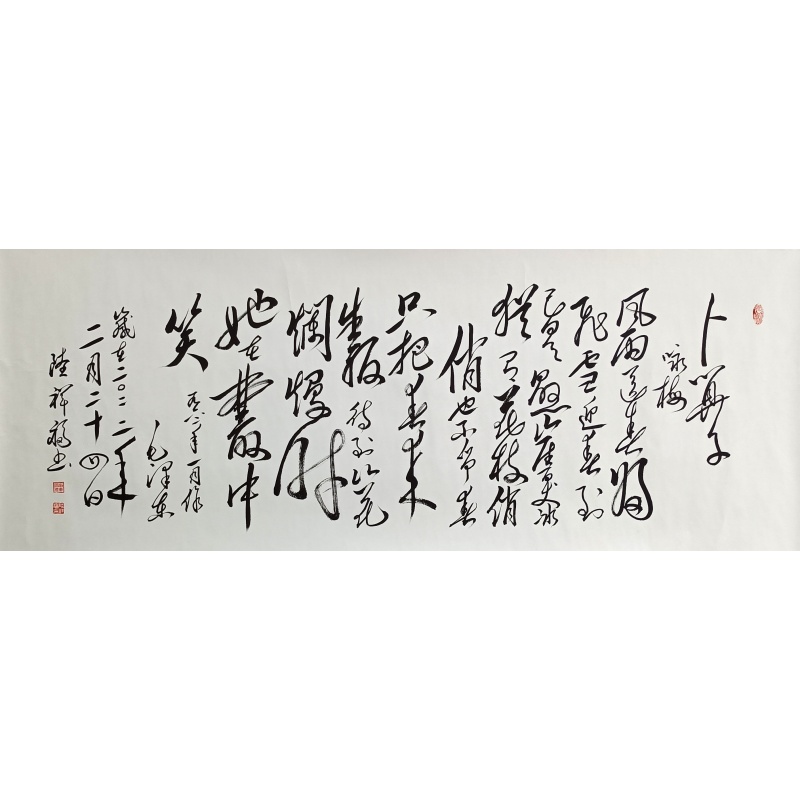 卜算子
咏梅
风雨送春归
飞雪迎春到
已是懸崖百丈冰
犹有花枝俏
俏也不争春
只把春来
报
待到山花
爛熳时
她在叢中
笑
年一月
毛澤东
歲在二〇二二年
二月二十四日
陸祥福书